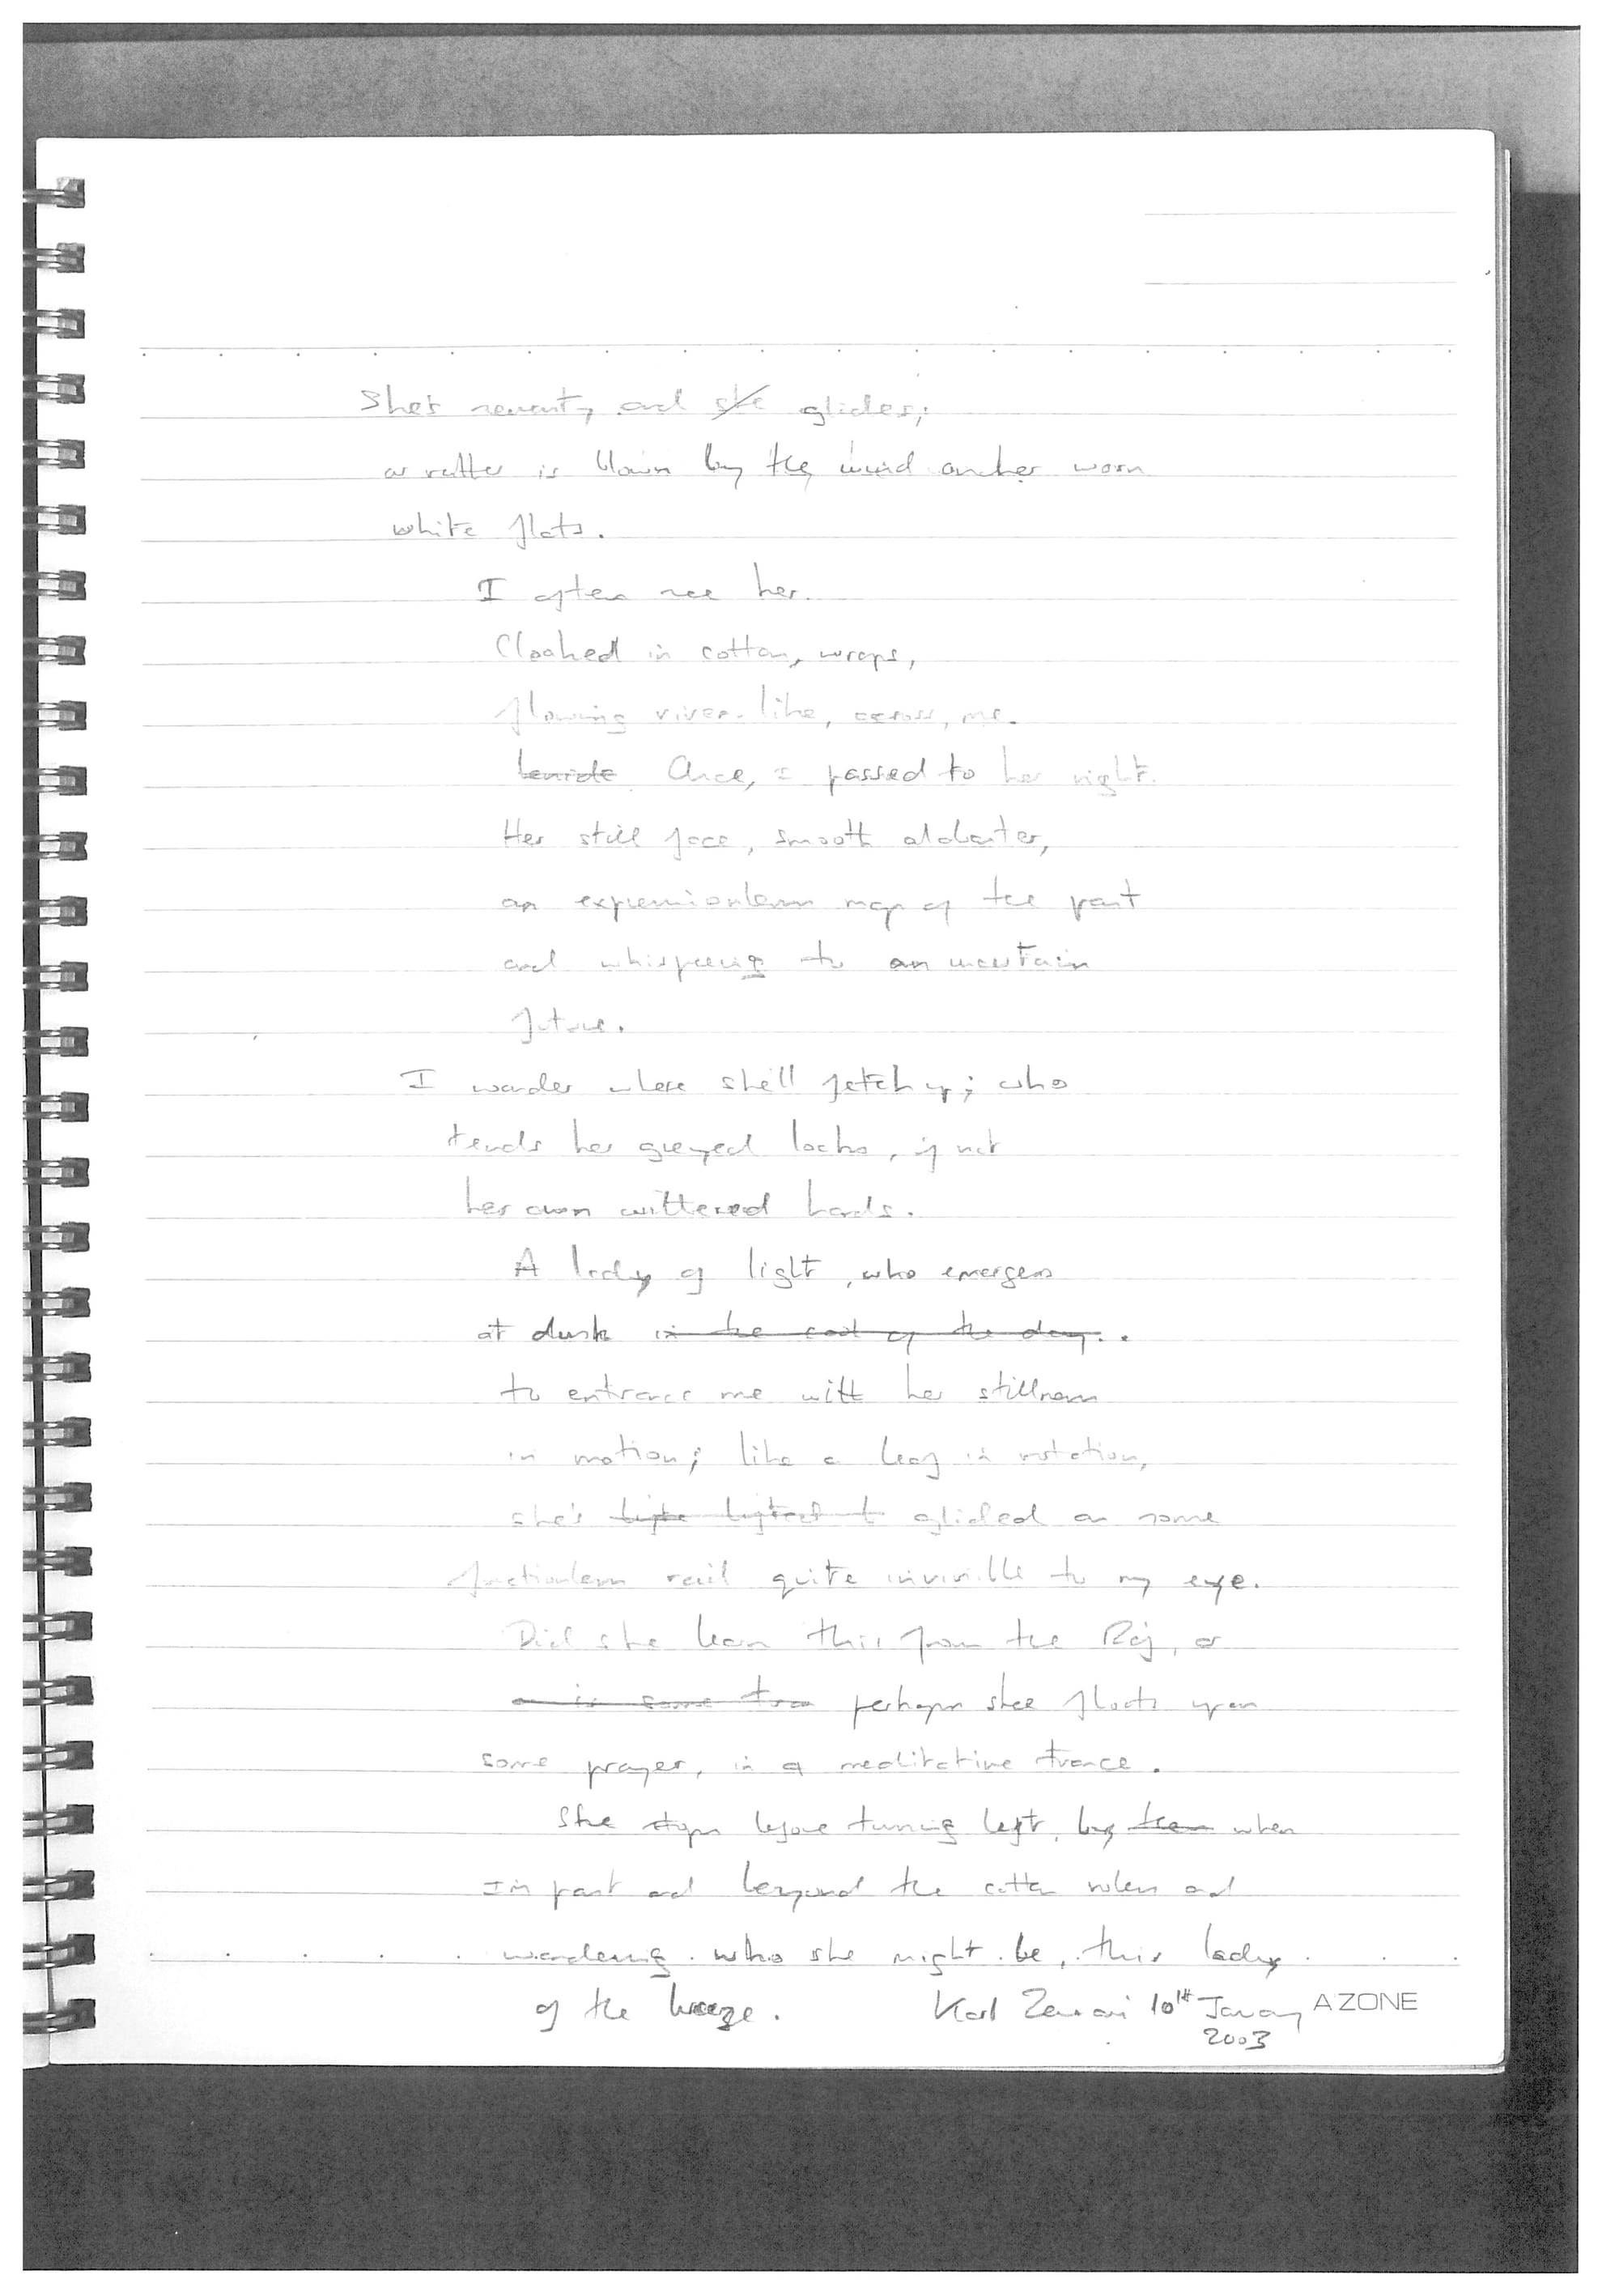 She's seventy and she glides;
or rather is blown by the wind on her worn
white flats.
I often see her.
Cloaked in cotton, wraps,
flowing river-like, across, me.
beside Once, I passed to her right.
Her still face, smooth alabaster,
an expressionless map of the past
and whispering to an uncertain
future.
I wonder where she'll fetch up; who
tends her greyed locks, if not
her own withered hands.
A lady of light, who emerges
at dusk in the cool of the day..
to entrance me with her stillness
in motion; like a leaf in rotation,
she's glided on some
frictionless rail quite invisible to my eye.
Did she learn this from the Raj, or
or is some tra perhaps she floats upon
some prayer, in a meditative trance.
She stops before turning left, by then when
I'm past and beyond the cotton and
wondering who she might be, this lady
of the breeze. Karl 10th January
2003
AZONE